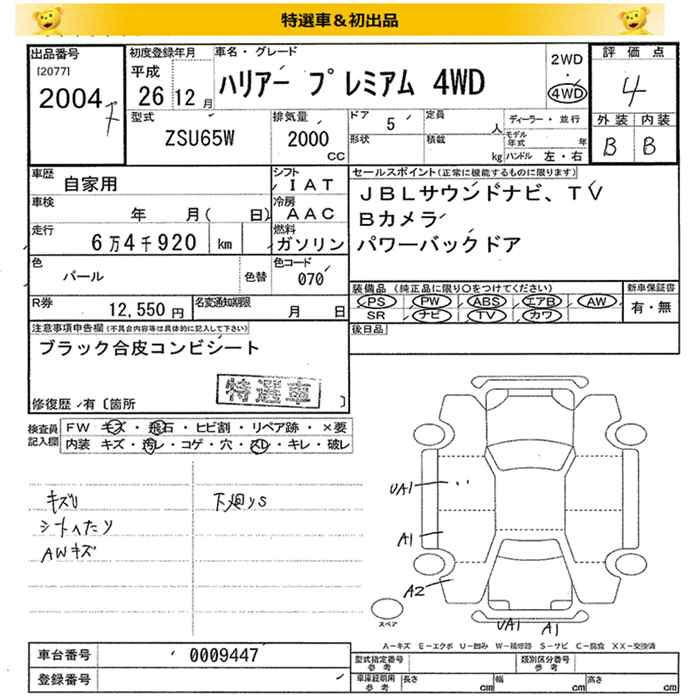 特選車＆初出品
出品番号 初度登録年月 車名・グレード 評価点
[2077] 平成 2WD
2004 26 12月 ハリアー プレミアム 4WD ・ 4
4WD
型式 排気量 ドア 5 定員 人 ディーラー・並行 外装 内装
ZSU65W 2000 CC 形状 積載 kg モデル年式 年 B B
ハンドル 左・右
車歴 自家用 シフト IAT セールスポイント(正常に機能するものに限ります)
車検 年 月( 日) 冷房 AAC JBLサウンドナビ、TV
走行 6万4千920 km 燃料 ガソリン Bカメラ
パワーバックドア
色 パール 色替 色コード 070
装備品 (純正品に限り○をつけてください) 新車保証書
R券 12,550円 名変通知期限 月 日 PS PW ABS エアB AW 有・無
SR ナビ TV カワ
注意事項申告欄(不具合内容等は具体的に記入して下さい) 後日品
ブラック合皮コンビシート
特選車
修復歴・有〔箇所 〕
検査員記入欄 FW キズ・飛石・ヒビ割・リペア跡・×要
内装 キズ・汚レ・コゲ・穴・スレ・キレ・破レ
キズU 下廻りS
シートへたり
AWキズ
UA1
A1
A2
スペア
UA1 A1
A－キズ E－エクボ U－凹み W－補修跡 S－サビ C－腐食 XX－交換済
車台番号 0009447 型式指定番号 参考 類別区分番号 参考
登録番号 車庫証明用 参考 長さ cm 幅 cm 高さ cm